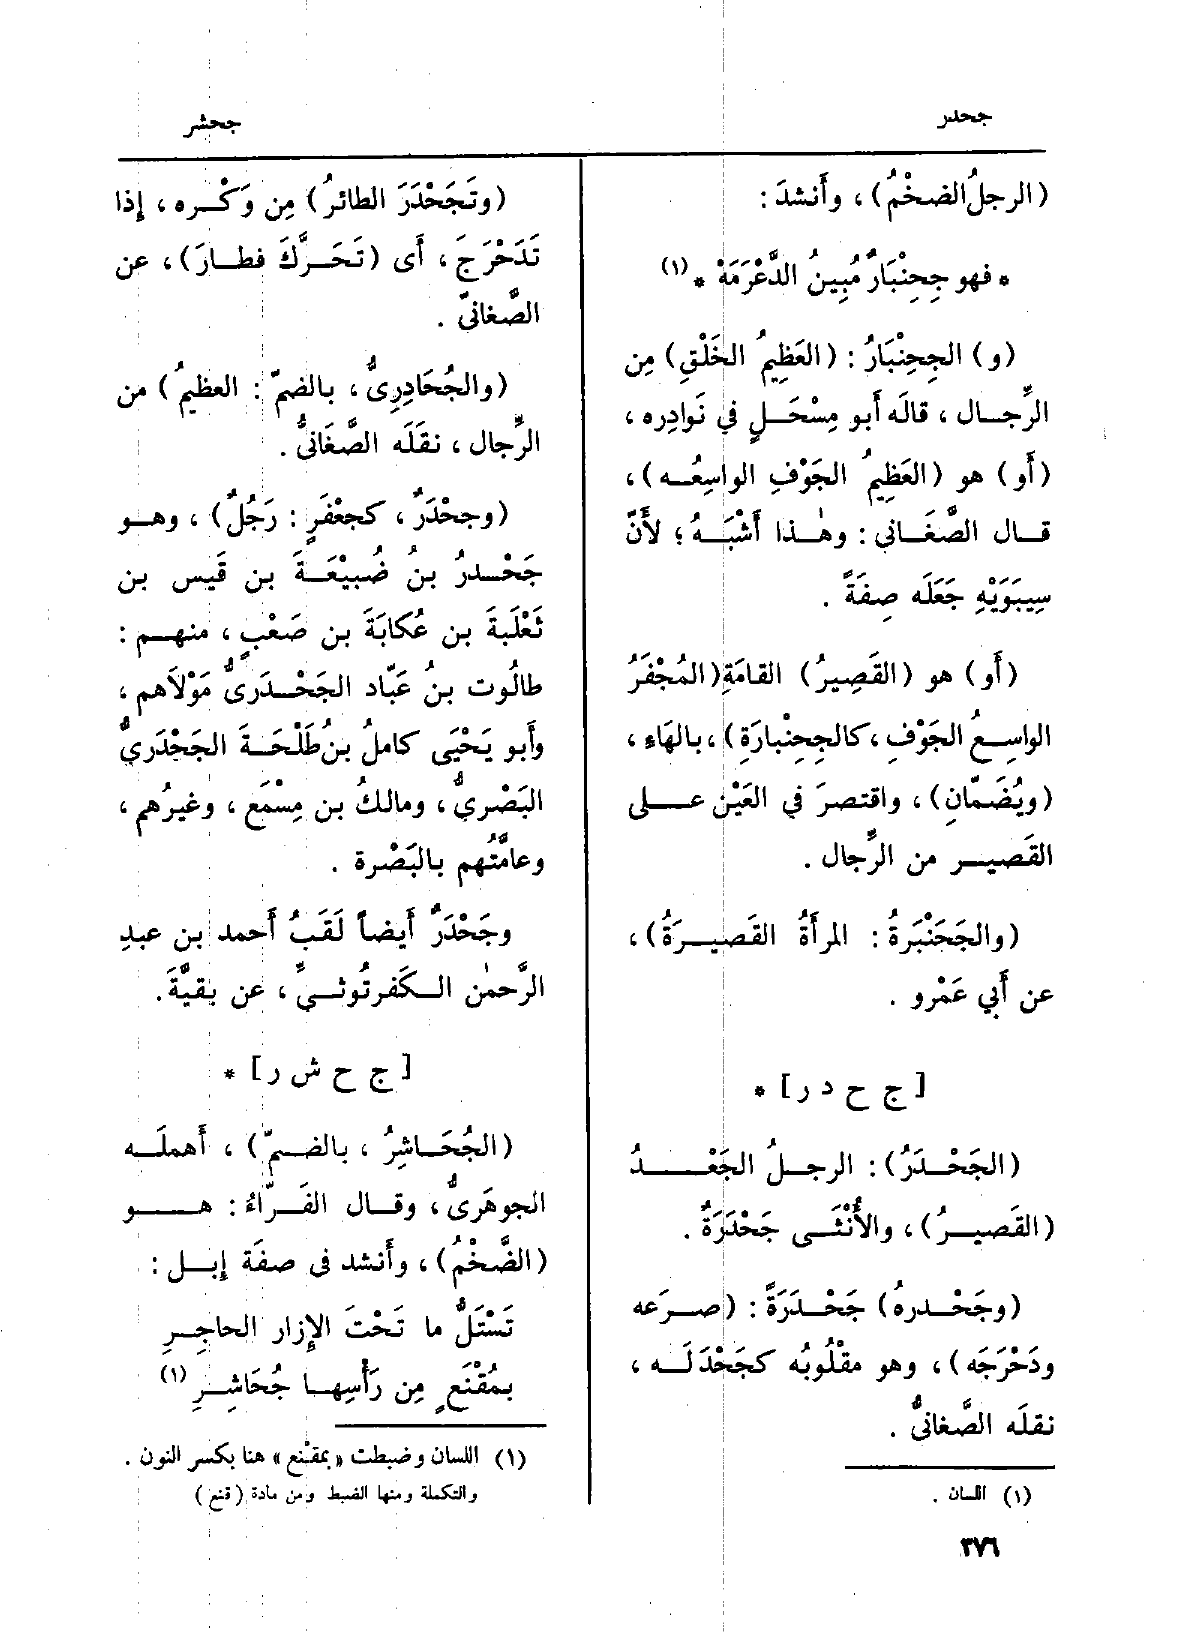 جحدر
جحشر
(الرجلُ الضخْمُ)، وأَنشدَ:
* فهو جِحِنْبَارٌ مُبِينُ الدَّعْرَمَهْ * (١)
(و) الجِحِنْبَارُ: (العَظِيمُ الخَلْقِ) مِن
الرِّجال، قالَه أَبو مِسْحَلٍ في نَوادِره،
(أَو) هو (العَظِيمُ الجَوْفِ الواسِعُه)،
قال الصَّغَانى: وهٰذا أَشْبَهُ؛ لأَنّ
سِيبَوَيْهِ جَعَلَه صِفَةً.
(أَو) هو (القَصِيرُ) القامَةِ (المُجْفَرُ
الواسِعُ الجَوْفِ، كالجِحِنْبارَةِ)، بالهَاءِ،
(ويُضَمّانِ)، واقتصرَ في العَيْنِ على
القَصيرِ من الرِّجال.
(والجَحَنْبَرةُ: المرأَةُ القَصيرَةُ)،
عن أَبي عَمْرو.
[ج ح د ر] *
(الجَحْدَرُ): الرجلُ الجَعْدُ
(القَصيرُ)، والأُنْثَى جَحْدَرَةٌ.
(وجَحْدرهُ) جَحْدَرَةً: (صرَعه
ودَحْرَجَه)، وهو مقْلُوبُه كجَحْدَلَه،
نقلَه الصَّغانىُّ.
(١) اللسان.
(وتَجَحْدَرَ الطائرُ) مِن وَكْره، إِذا
تَدَحْرَجَ، أَى (تَحَرَّكَ فطارَ)، عن
الصَّغانىّ.
(والجُحَادِرِىُّ، بالضمّ: العظيمُ) من
الرِّجال، نقَلَه الصَّغَانىُّ.
(وجحْدَرٌ، كجعْفَرٍ: رَجُلٌ)، وهو
جَحْدرُ بنُ ضُبيْعَةَ بن قَيس بن
ثَعْلَبةَ بن عُكابَةَ بن صَعْبٍ، منهم:
طالُوت بنُ عَبّاد الجَحْدَرىُّ مَوْلاَهم،
وأَبو يَحْيَى كاملُ بن طَلْحَةَ الجَحْدَرىُّ
البَصْرىُّ، ومالكُ بن مِسْمَعٍ، وغيرُهم،
وعامَّتُهم بالبَصْرة.
وجَحْدَرٌ أَيضاً لَقَبُ أَحمد بن عبدِ
الرَّحمٰن الكَفرتُوثىِّ، عن بقيَّةَ.
[ج ح ش ر] *
(الجُحَاشِرُ، بالضمّ)، أَهملَه
الجوهَرىُّ، وقال الفَرّاءُ: هو
(الضَّخْمُ)، وأَنشد فى صفَة إِبل:
تَسْتَلُّ ما تَحْتَ الإِزار الحاجِرِ
بمُقْنَعٍ مِن رَأْسِها جُحَاشِرِ (١)
(١) اللسان وضبطت «بمقنع» هنا بكسر النون.
والتكملة ومنها الضبط ومن مادة (قنع)
٣٧٦